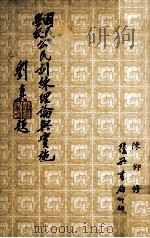 陳仰修
復興書局印行
國民
學校
公民訓練理論與實施
劉真題